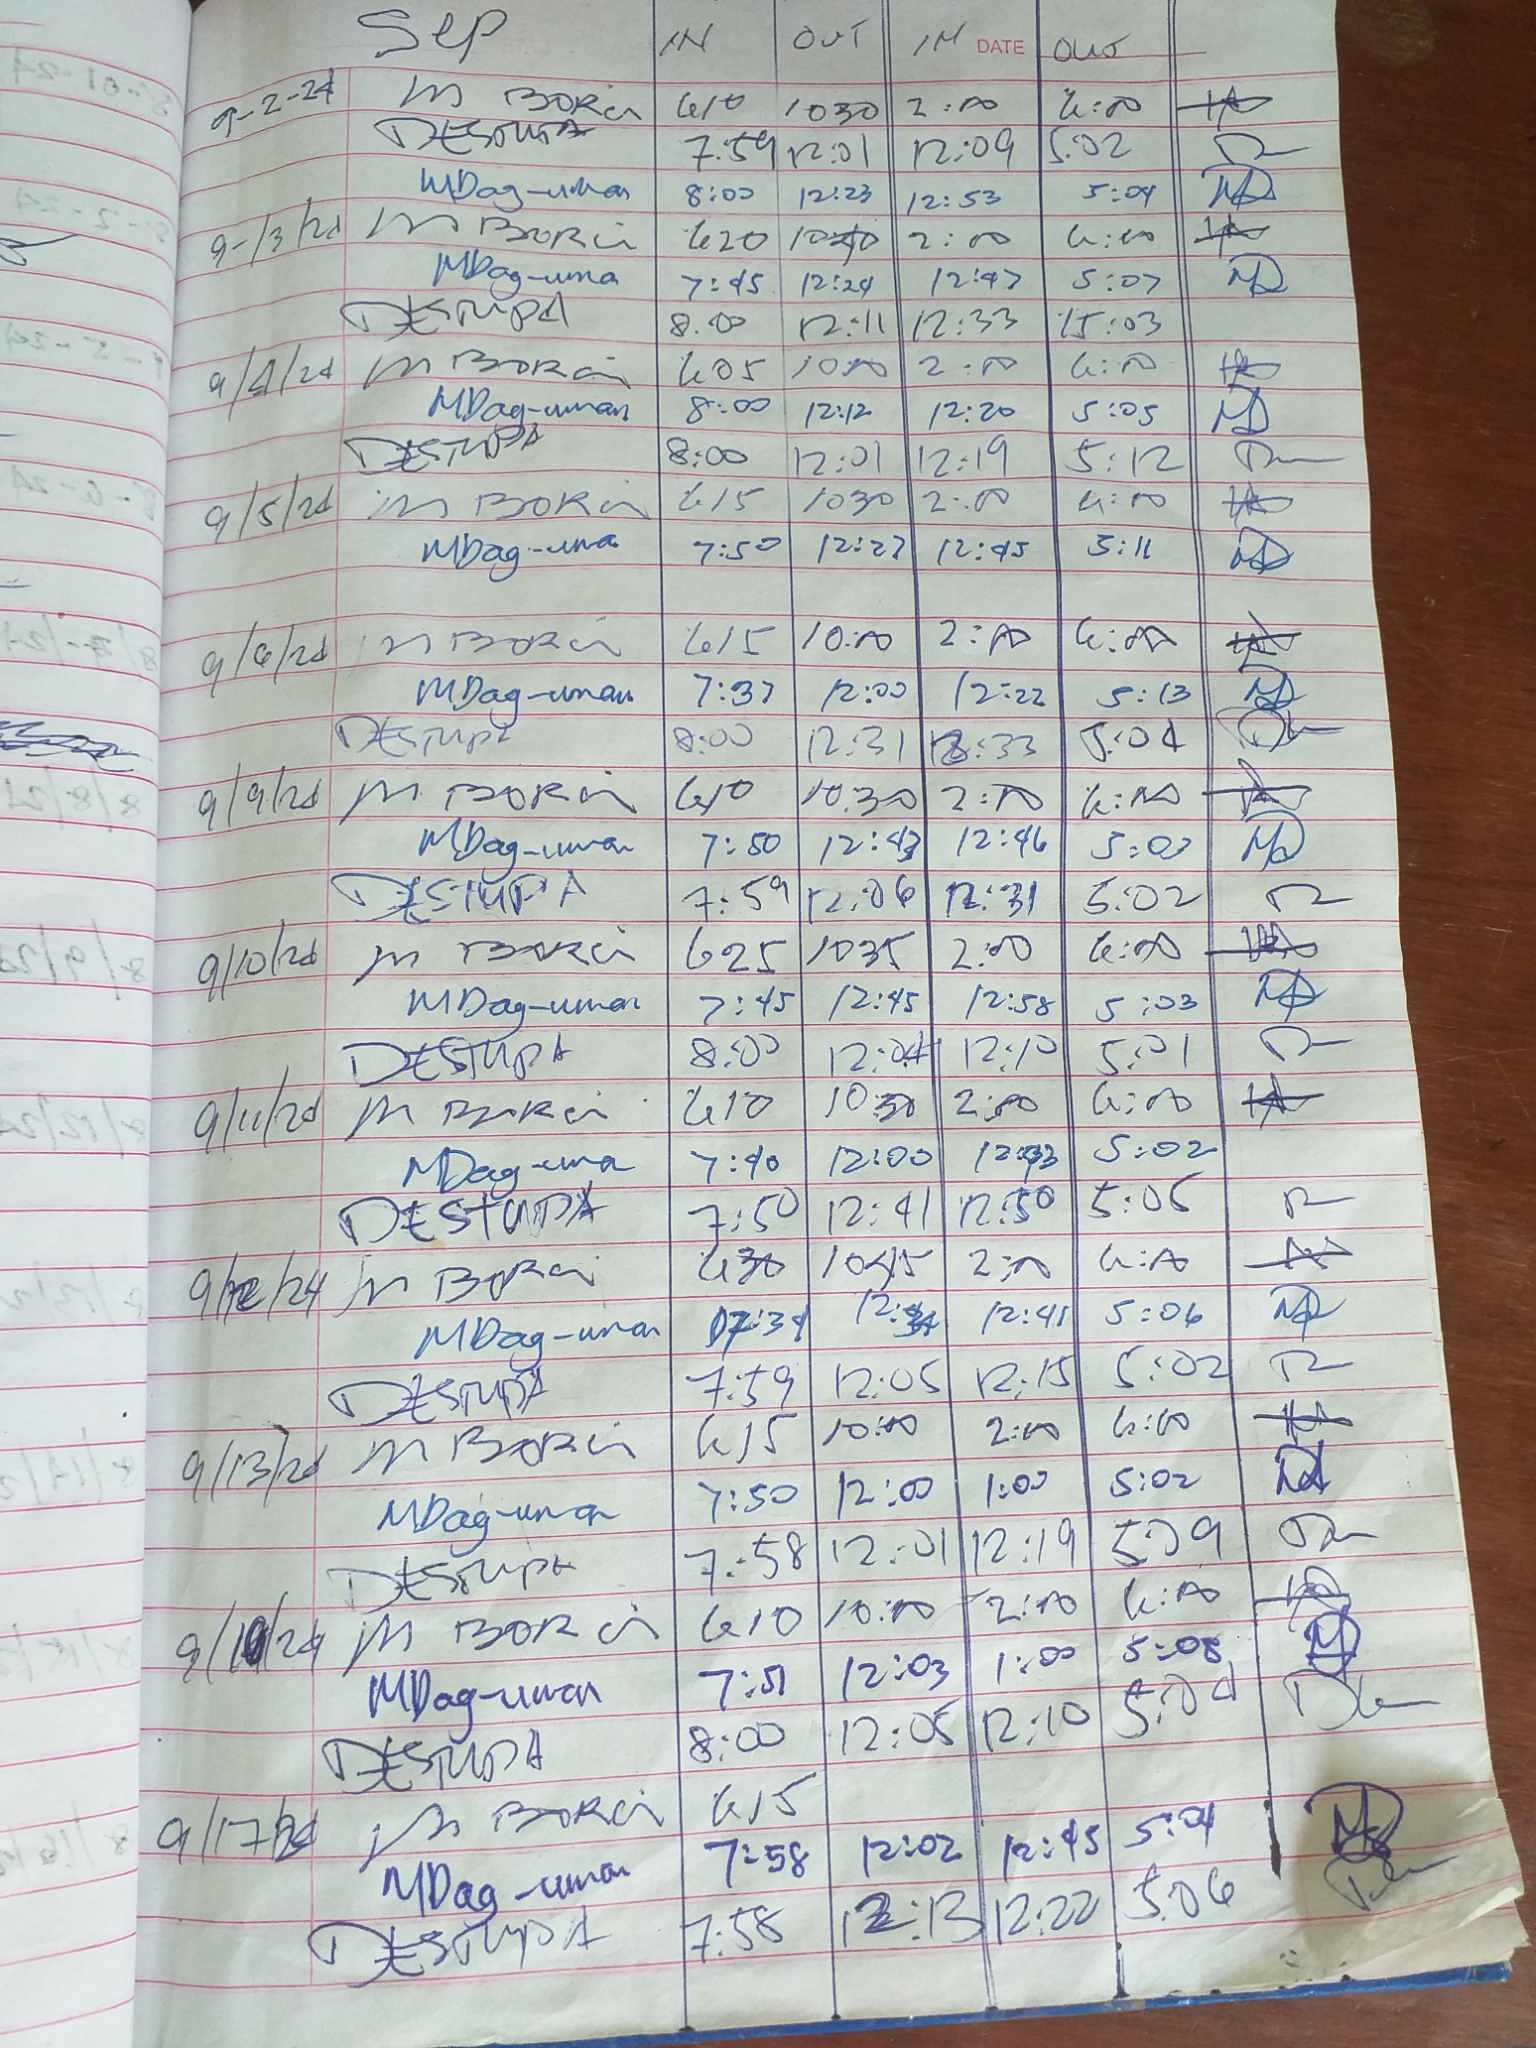 Sep IN OUT IN DATE OUT
9-2-24 M BORCI 610 1030 2:00 6:00
DESTUPA 7:59 12:01 12:09 5:02
MDag-uman 8:00 12:23 12:53 5:04 MD
9-/3/24 M BORCI 620 1040 2:00 6:00
MDag-uma 7:45 12:24 12:47 5:07 MD
DESTUPA 8:00 12:11 12:33 15:03
9/4/24 M BORCI 605 1000 2:00 6:00
MDag-uman 8:00 12:12 12:20 5:05 MD
DESTUPA 8:00 12:01 12:19 5:12
9/5/24 M BORCI 615 1030 2:00 6:00
MDag-uma 7:50 12:27 12:45 5:11 MD
9/6/24 M BORCI 615 10:00 2:00 6:00
MDag-uman 7:37 12:00 12:22 5:13 MD
DESTUPA 8:00 12:31 :33 5:04
9/9/24 M BORCI 610 10:30 2:00 6:00
MDag-uman 7:50 12:43 12:46 5:00 MD
DESTUPA 7:59 12:06 12:31 5:02
9/10/24 M BORCI 625 1035 2:00 6:00
MDag-uman 7:45 12:45 12:58 5:03 MD
DESTUPA 8:00 12:04 12:10 5:01
9/11/24 M BORCI 610 1030 2:00 6:00
MDag-uma 7:40 12:00 5:02
DESTUPA 7:50 12:41 12:50 5:05
9/12/24 M BORCI 630 1045 2:00 6:00
MDag-uman 12:41 5:06 MD
DESTUPA 7:59 12:05 12:15 5:02
9/13/24 M BORCI 615 10:00 2:00 6:00
MDag-uman 7:50 12:00 1:00 5:02 MD
DESTUPA 7:58 12:01 12:19 5:09
M BORCI 610 10:00 2:00 6:00
MDag-uman 7:51 12:03 1:00 5:08 MD
DESTUPA 8:00 12:05 12:10 5:04
9/17/24 M BORCI 615
MDag-uman 7:58 12:02 12:45 5:04 MD
DESTUPA 7:58 12:13 12:22 5:06